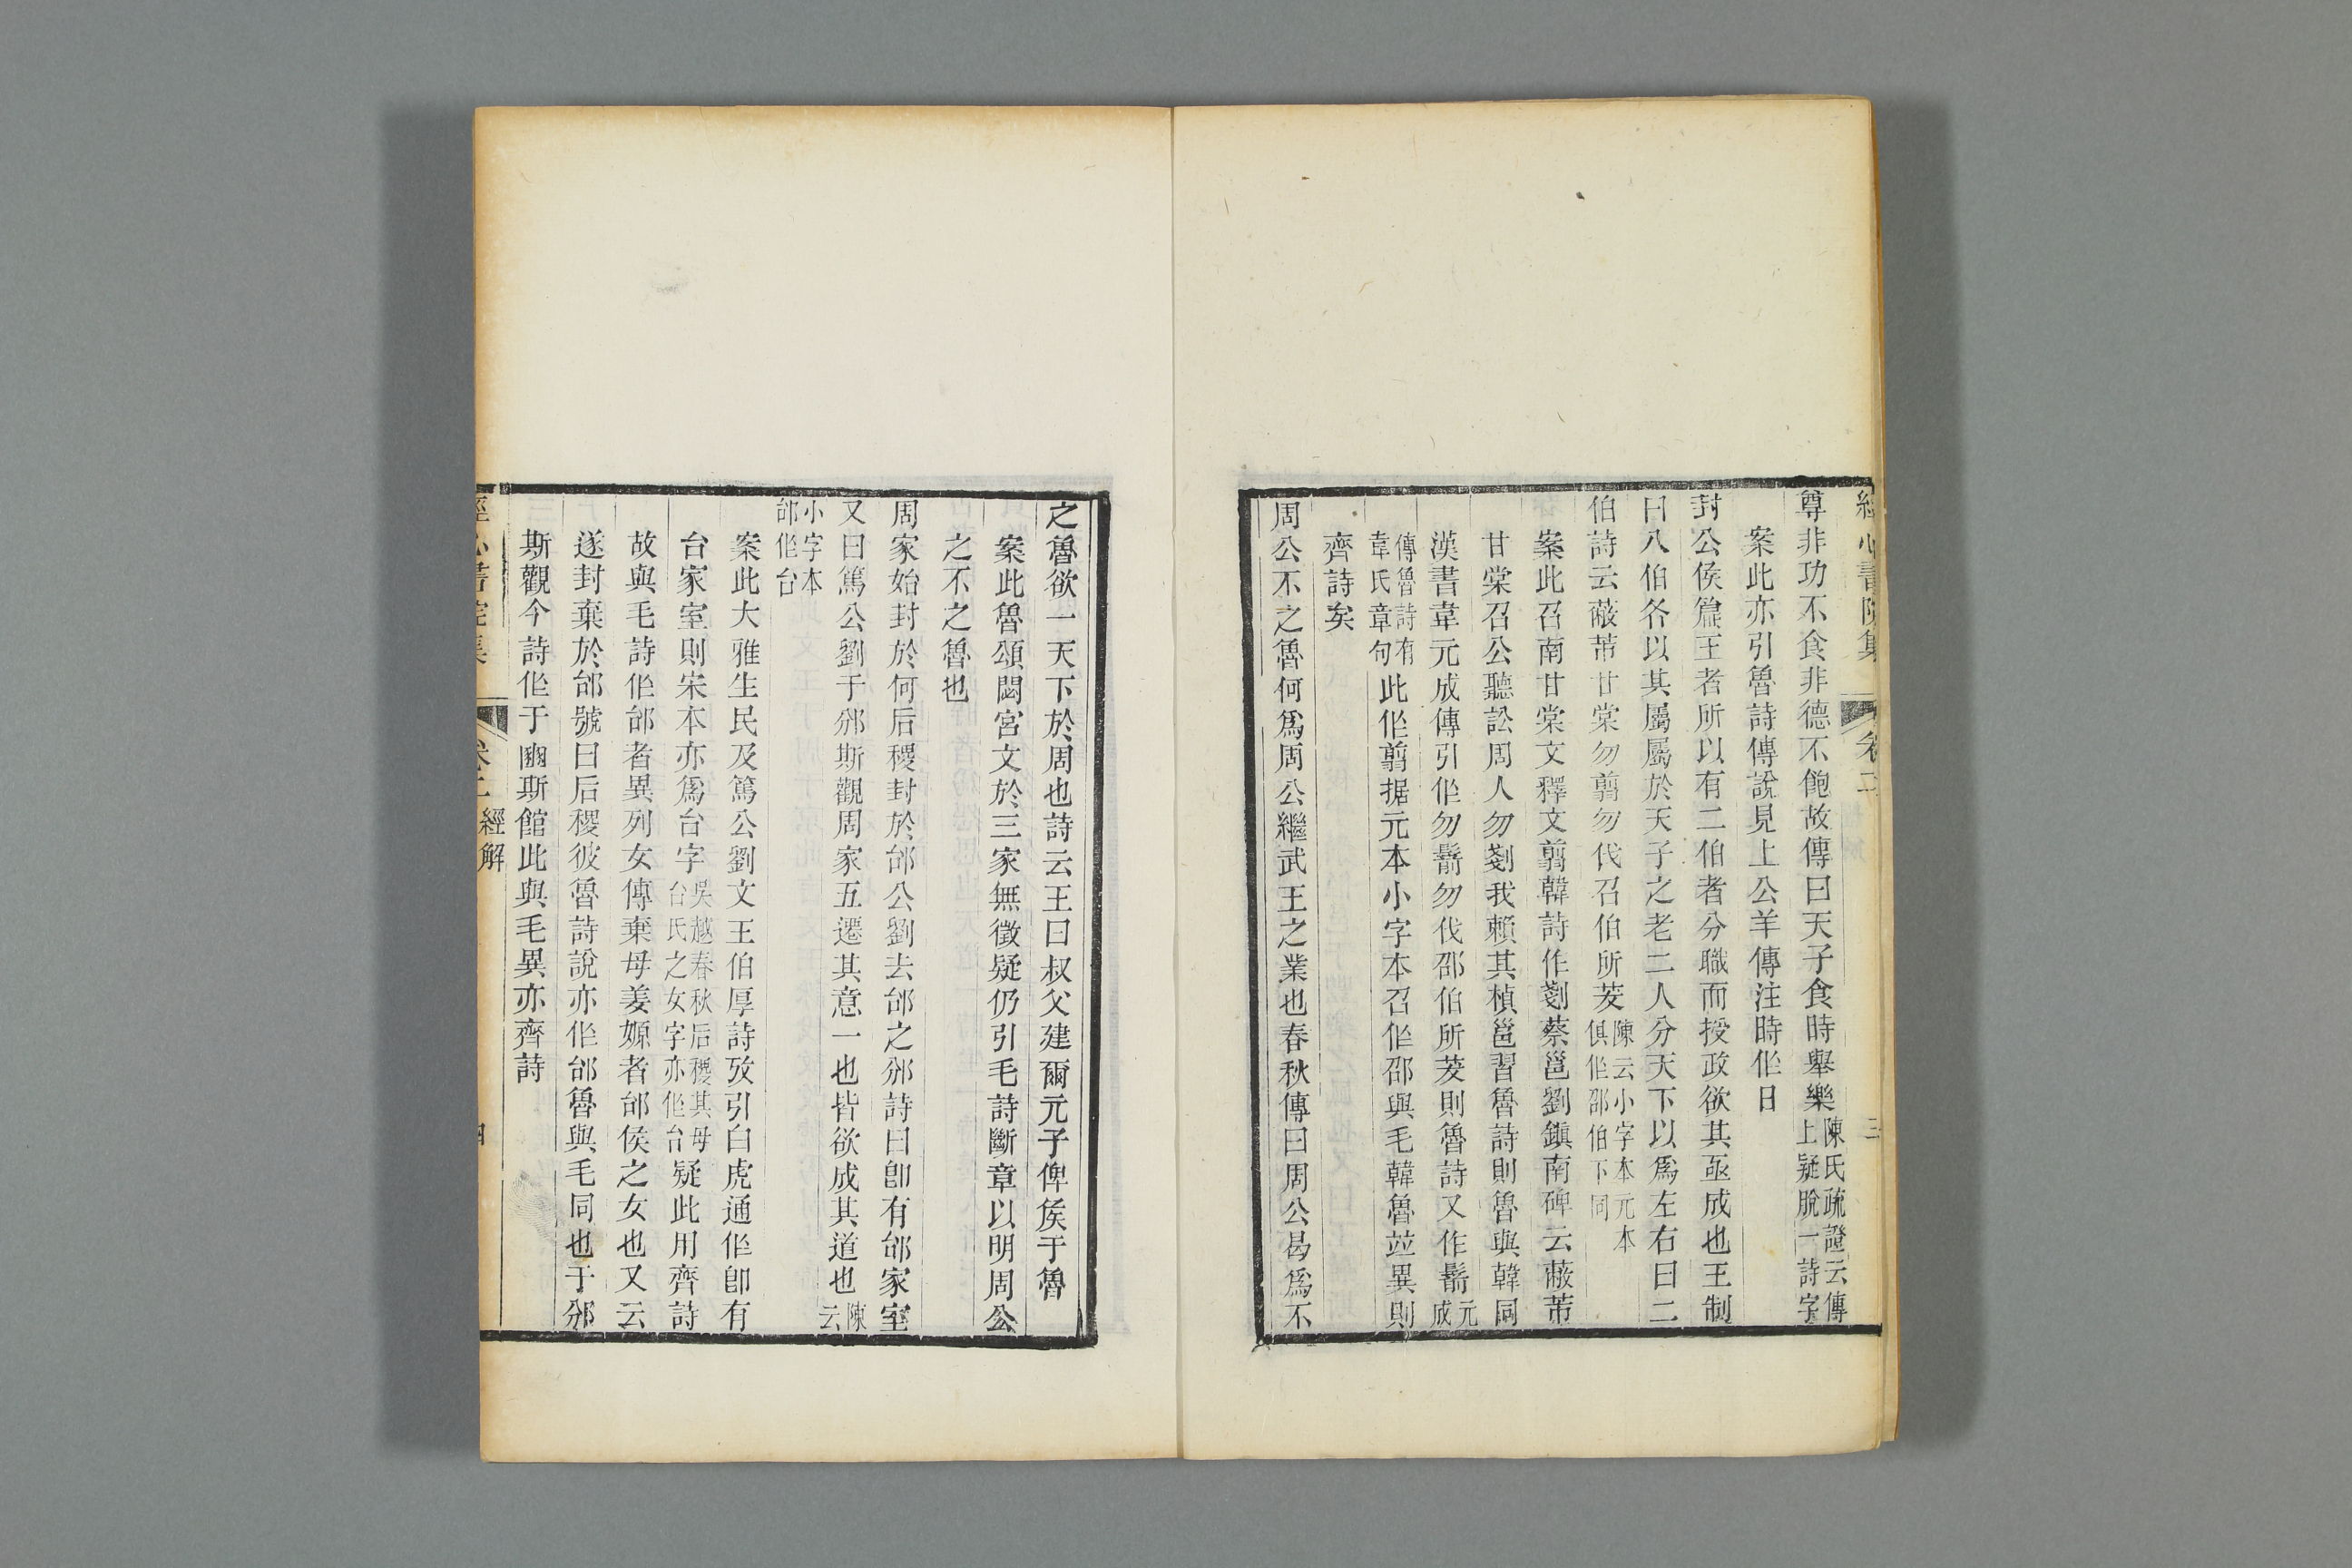 經心書院集 卷二 三
尊非功不食非德不飽故傳曰天子食時舉樂陳氏疏證云傳上疑脫一詩字
案此亦引魯詩傳說見上公羊傳注時作日
封公侯篇王者所以有二伯者分職而授政欲其亟成也王制
曰八伯各以其屬屬於天子之老二人分天下以爲左右曰二
伯詩云蔽芾甘棠勿翦勿伐召伯所茇陳云小字本元本俱作邵伯下同
案此召南甘棠文釋文翦韓詩作剗蔡邕劉鎮南碑云蔽芾
甘棠召公聽訟周人勿剗我賴其楨邕習魯詩則魯與韓同
漢書韋元成傳引作勿鬋勿伐邵伯所茇則魯詩又作鬋元成
傳魯詩有韋氏章句此作翦据元本小字本召作邵與毛韓魯並異則
齊詩矣
周公不之魯何爲周公繼武王之業也春秋傳曰周公曷爲不
之魯欲一天下於周也詩云王曰叔父建爾元子俾侯于魯
案此魯頌閟宮文於三家無徵疑仍引毛詩斷章以明周公
之不之魯也
周家始封於何后稷封於邰公劉去邰之邠詩曰卽有邰家室
又曰篤公劉于邠斯觀周家五遷其意一也皆欲成其道也陳云
小字本邰作台
案此大雅生民及篤公劉文王伯厚詩攷引白虎通作卽有
台家室則宋本亦爲台字吳越春秋后稷其母台氏之女字亦作台疑此用齊詩
故與毛詩作邰者異列女傳棄母姜嫄者邰侯之女也又云
遂封棄於邰號曰后稷彼魯詩說亦作邰魯與毛同也于邠
斯觀今詩作于豳斯館此與毛異亦齊詩
經心書院集 卷二 經解 四